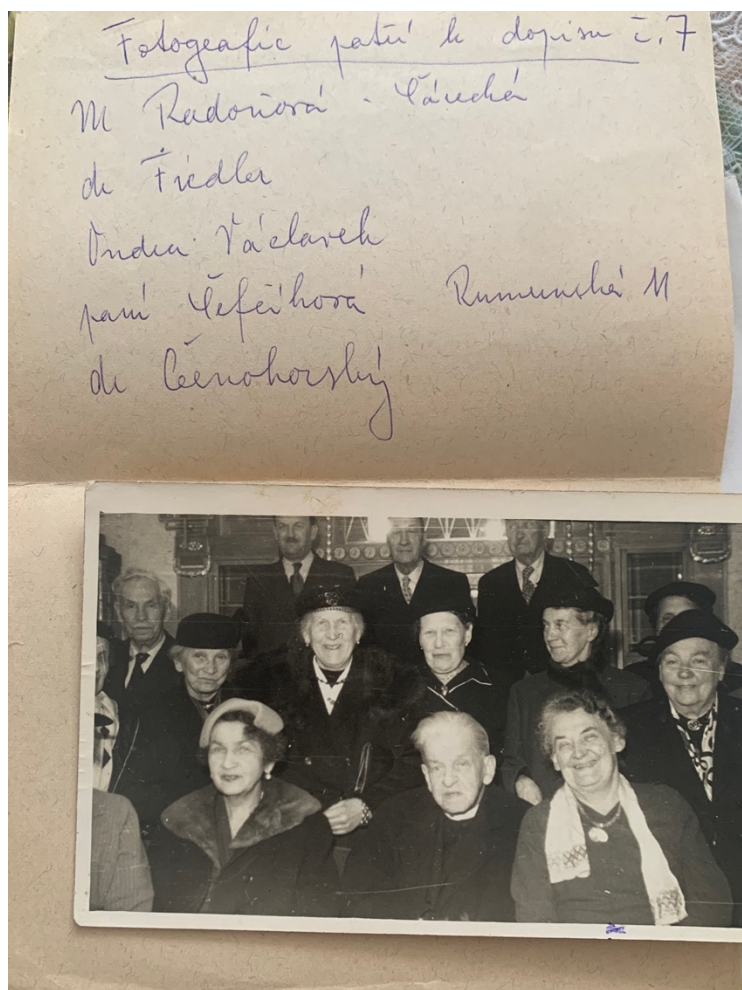 Fotografie patří k dopisu č. 7
M Radoňová - Šárecká
dr Fiedler
Ondra Václavek
paní Šefčíková Rumunská 11
dr Černohorský